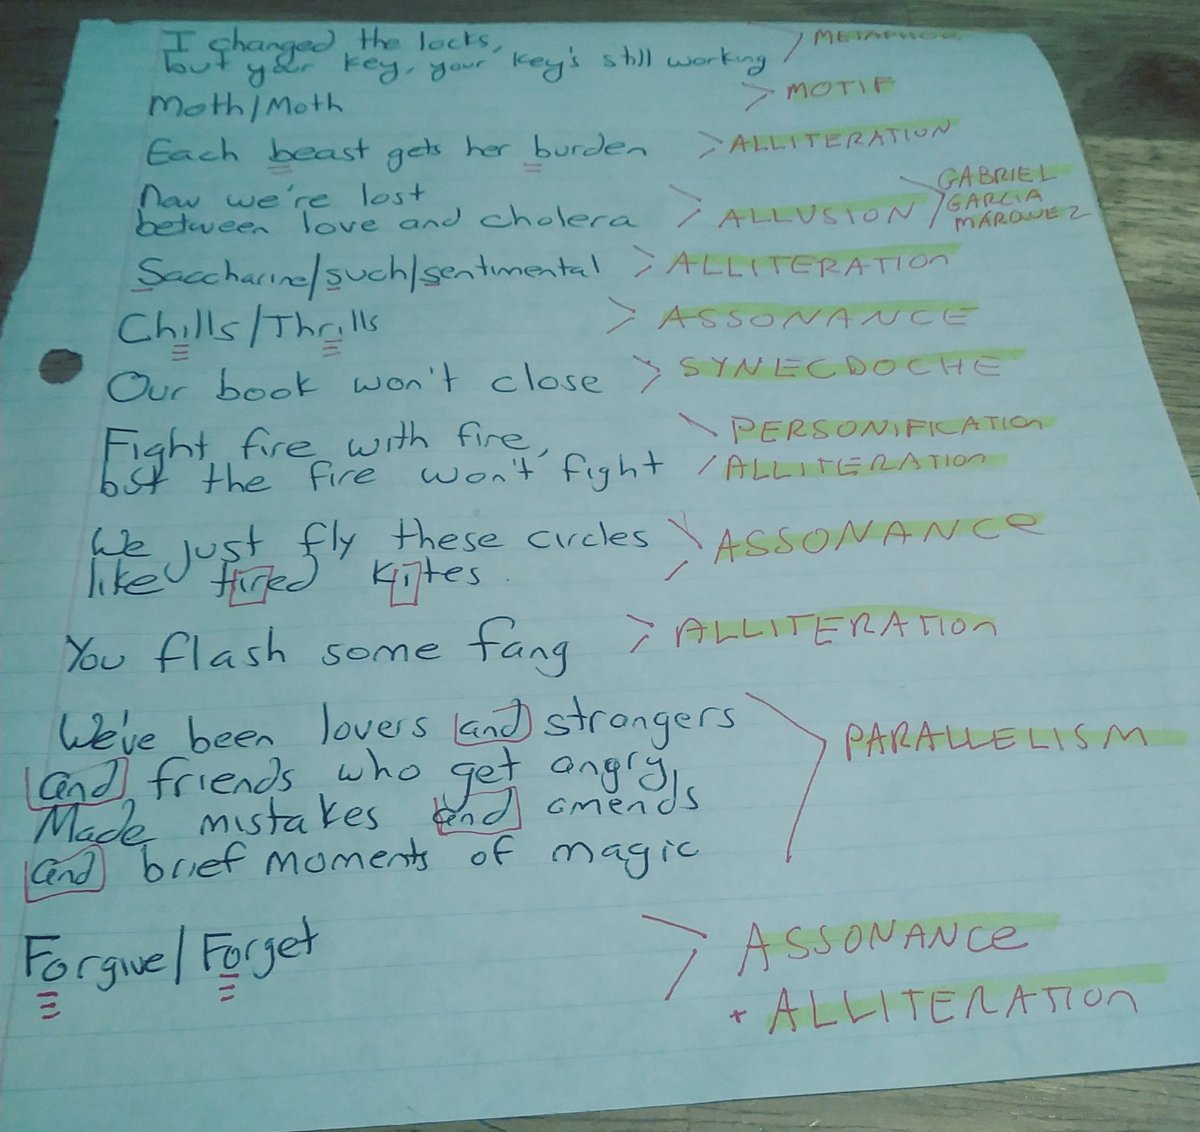 I changed the locks, > METAPHOR
but your key, your key's still working
Moth/Moth > MOTIF
Each beast gets her burden > ALLITERATION
Now we're lost
between love and cholera > ALLUSION > GABRIEL GARCIA MÁRQUEZ
Saccharine/such/sentimental > ALLITERATION
Chills/Thrills > ASSONANCE
Our book won't close > SYNECDOCHE
Fight fire with fire, PERSONIFICATION
but the fire won't fight ALLITERATION
We just fly these circles > ASSONANCE
like tired kites.
You flash some fang > ALLITERATION
We've been lovers and strangers
and friends who get angry, > PARALLELISM
Made mistakes and amends
and brief moments of magic
Forgive/Forget > ASSONANCE
+ ALLITERATION